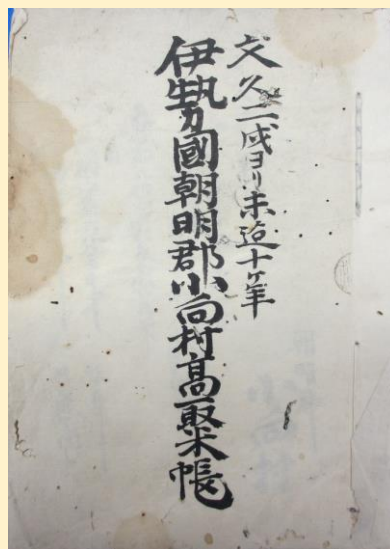 文久二戌ヨリ未迄十ケ年
伊勢國朝明郡小向村高取米帳